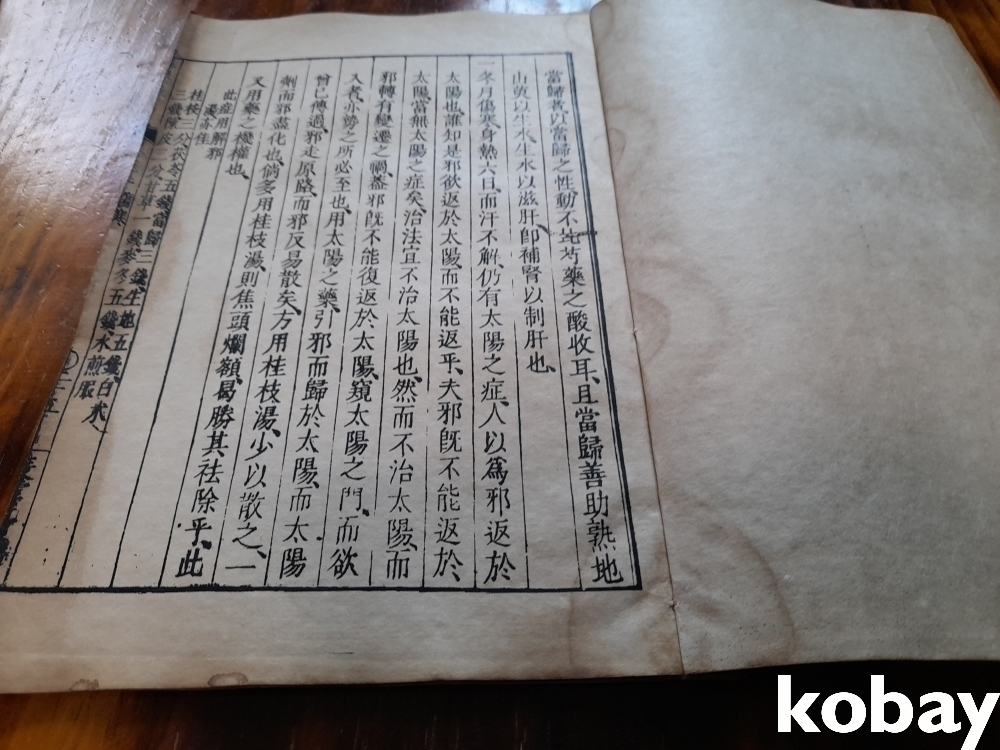 當歸者以當歸之性動不比芍藥之酸收耳且當歸善助熟地
山萸以生水生水以滋肝卽補腎以制肝也
一冬月傷寒身熱六日而汗不解仍有太陽之症人以爲邪返於
太陽也誰知是邪欲返於太陽而不能返乎夫邪旣不能返於
太陽當無太陽之症矣治法宜不治太陽也然而不治太陽而
邪轉有變遷之禍葢邪旣不能復返於太陽窺太陽之門而欲
入者亦勢之所必至也用太陽之藥引邪而歸於太陽而太陽
曾已傳過邪走原路而邪反易散矣方用桂枝湯少以散之一
劑而邪盡化也倘多用桂枝湯則焦頭爛額曷勝其祛除乎此
又用藥之機權也
此症用解邪
湯亦佳
桂枝三分茯苓五錢當歸三錢生地五錢白朮
三錢陳皮三分甘草一錢麥冬五錢水煎服
kobay